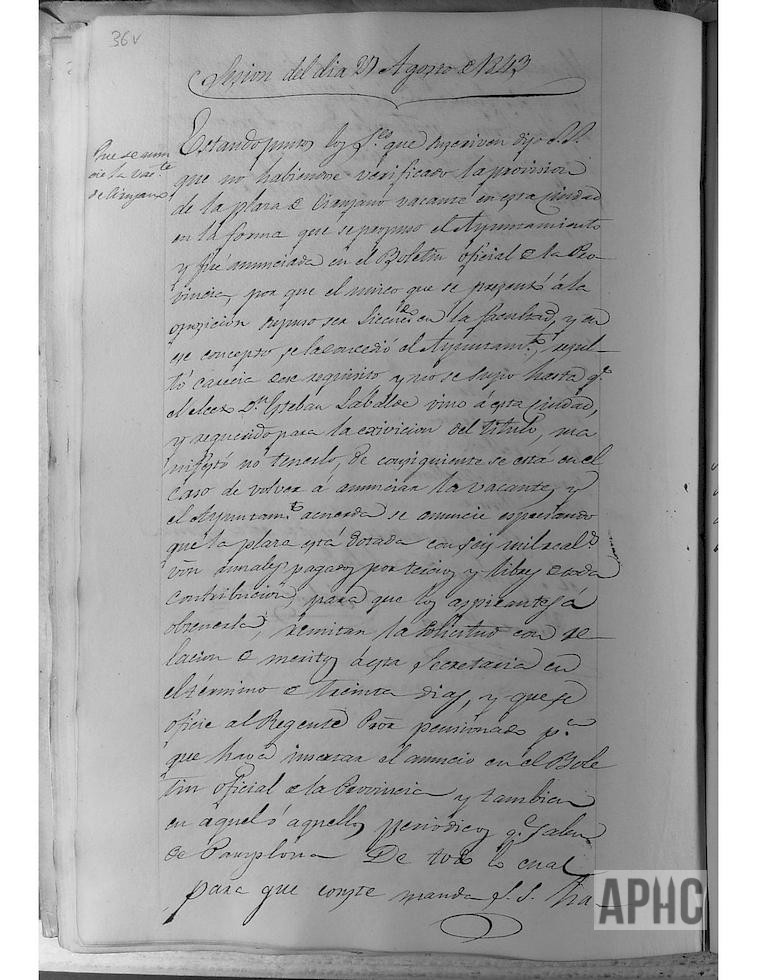 36v
Sesion del dia 27 Agosto de 1843
Que se anun
cie la vac.te
de Cirujano
Estando juntos los S.res que suscriven dijo S.S.
que no habiendose verificado la provision
de la plaza de Cirujano vacante en esta Ciudad
en la forma que se propuso el Ayuntamiento
y fué anunciada en el Boletin oficial de la Pro
vincia, por que el unico que se presentó á la
oposicion supuso ser Licen.do en la facultad, y en
ese concepto se la concedió el Ayuntam.to, resul-
tó carecia de ese requisito y no se supo hasta q.e
el electo D.n Esteban Labalde vino á esta Ciudad,
y requerido para la exivicion del titulo, ma
nifestó no tenerlo, de consiguiente se está en el
caso de volver á anunciar la vacante, y
el Ayuntam.to acuerda se anuncie espresando
que la plaza está dotada con seis mil real.s
von anuales pagados por tercios y libres de toda
contribucion, para que los aspirantes á
obtenerla, remitan la solicitud con re-
lacion de meritos á esta Secretaria en
el término de treinta dias, y que se
oficie al Regente Pror pensionado p.a
que haga insertar el anuncio en el Bole
tin oficial de la Provincia y tambien
en aquel ó aquellos periodicos q.e salen
de Pamplona De todo lo cual
para que conste manda S.S. ha-
APHC